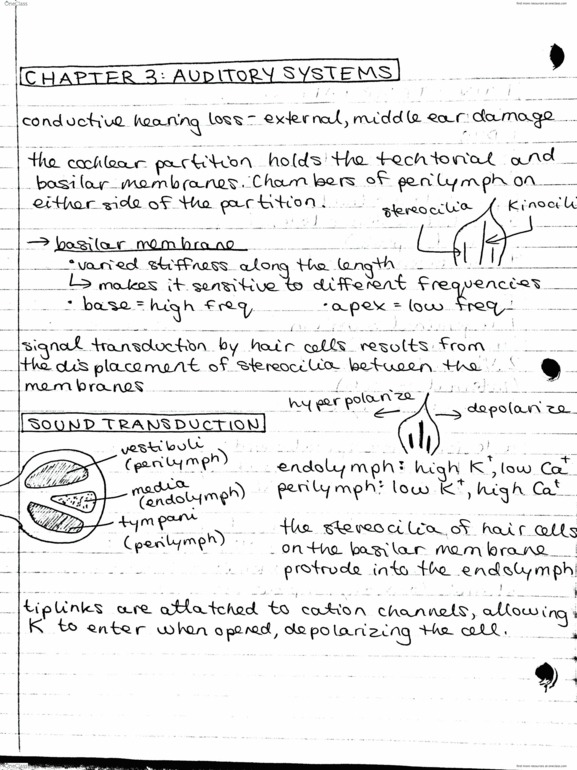 OneClass
find more resources at oneclass.com
CHAPTER 3: AUDITORY SYSTEMS
conductive hearing loss - external, middle ear damage
the cochlear partition holds the techtorial and
basilar membranes. Chambers of perilymph on
either side of the partition.
stereocilia Kinocili
→ basilar membrane
• varied stiffness along the length
↳ makes it sensitive to different frequencies
• base = high freq • apex = low freq
signal transduction by hair cells results from
the displacement of stereocilia between the
membranes
hyperpolarize depolarize
SOUND TRANSDUCTION
vestibuli
(perilymph)
media
(endolymph)
tympani
(perilymph)
endolymph: high K⁺, low Ca⁺
perilymph: low K⁺, high Ca⁺
the stereocilia of hair cells
on the basilar membrane
protrude into the endolymph
tiplinks are attatched to cation channels, allowing
K to enter when opened, depolarizing the cell.
OneClass
find more resources at oneclass.com